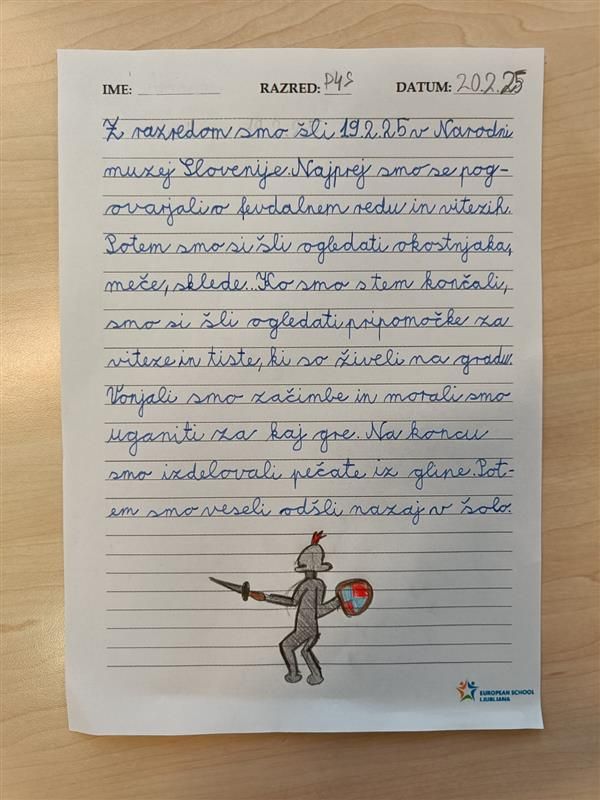 IME: RAZRED: P4S DATUM: 20.2.25
Z razredom smo šli 19.2.25 v Narodni
muzej Slovenije. Najprej smo se pog-
ovarjali o fevdalnem redu in vitezih.
Potem smo si šli ogledati okostnjaka,
meče, sklede... Ko smo s tem končali,
smo si šli ogledati pripomočke za
viteze in tiste, ki so živeli na gradu.
Vonjali smo začimbe in morali smo
uganiti za kaj gre. Na koncu
smo izdelovali pečate iz gline. Pot-
em smo veseli odšli nazaj v šolo.
EUROPEAN SCHOOL
LJUBLJANA